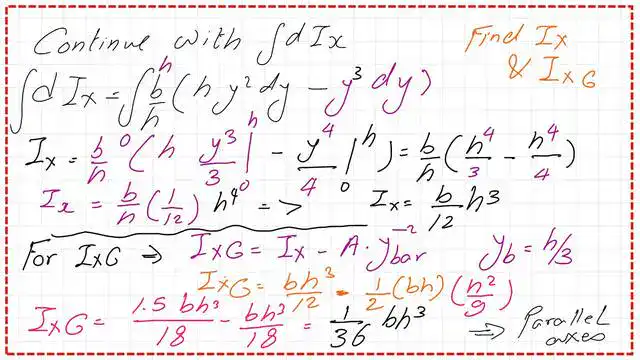 Continue with ∫dIx
Find Ix
& IxG
∫dIx = ∫₀ʰ b/h (h y² dy - y³ dy)
Ix = b/h (h y³/3 |₀ʰ - y⁴/4 |₀ʰ) = b/h (h⁴/3 - h⁴/4)
Ix = b/h (1/12) h⁴ => Ix = b/12 h³
For IxG => IxG = Ix - A·ȳ²bar yb = h/3
IxG = bh³/12 - 1/2 (bh) (h²/9)
IxG = 1.5 bh³/18 - bh³/18 = 1/36 bh³ => Parallel
axes